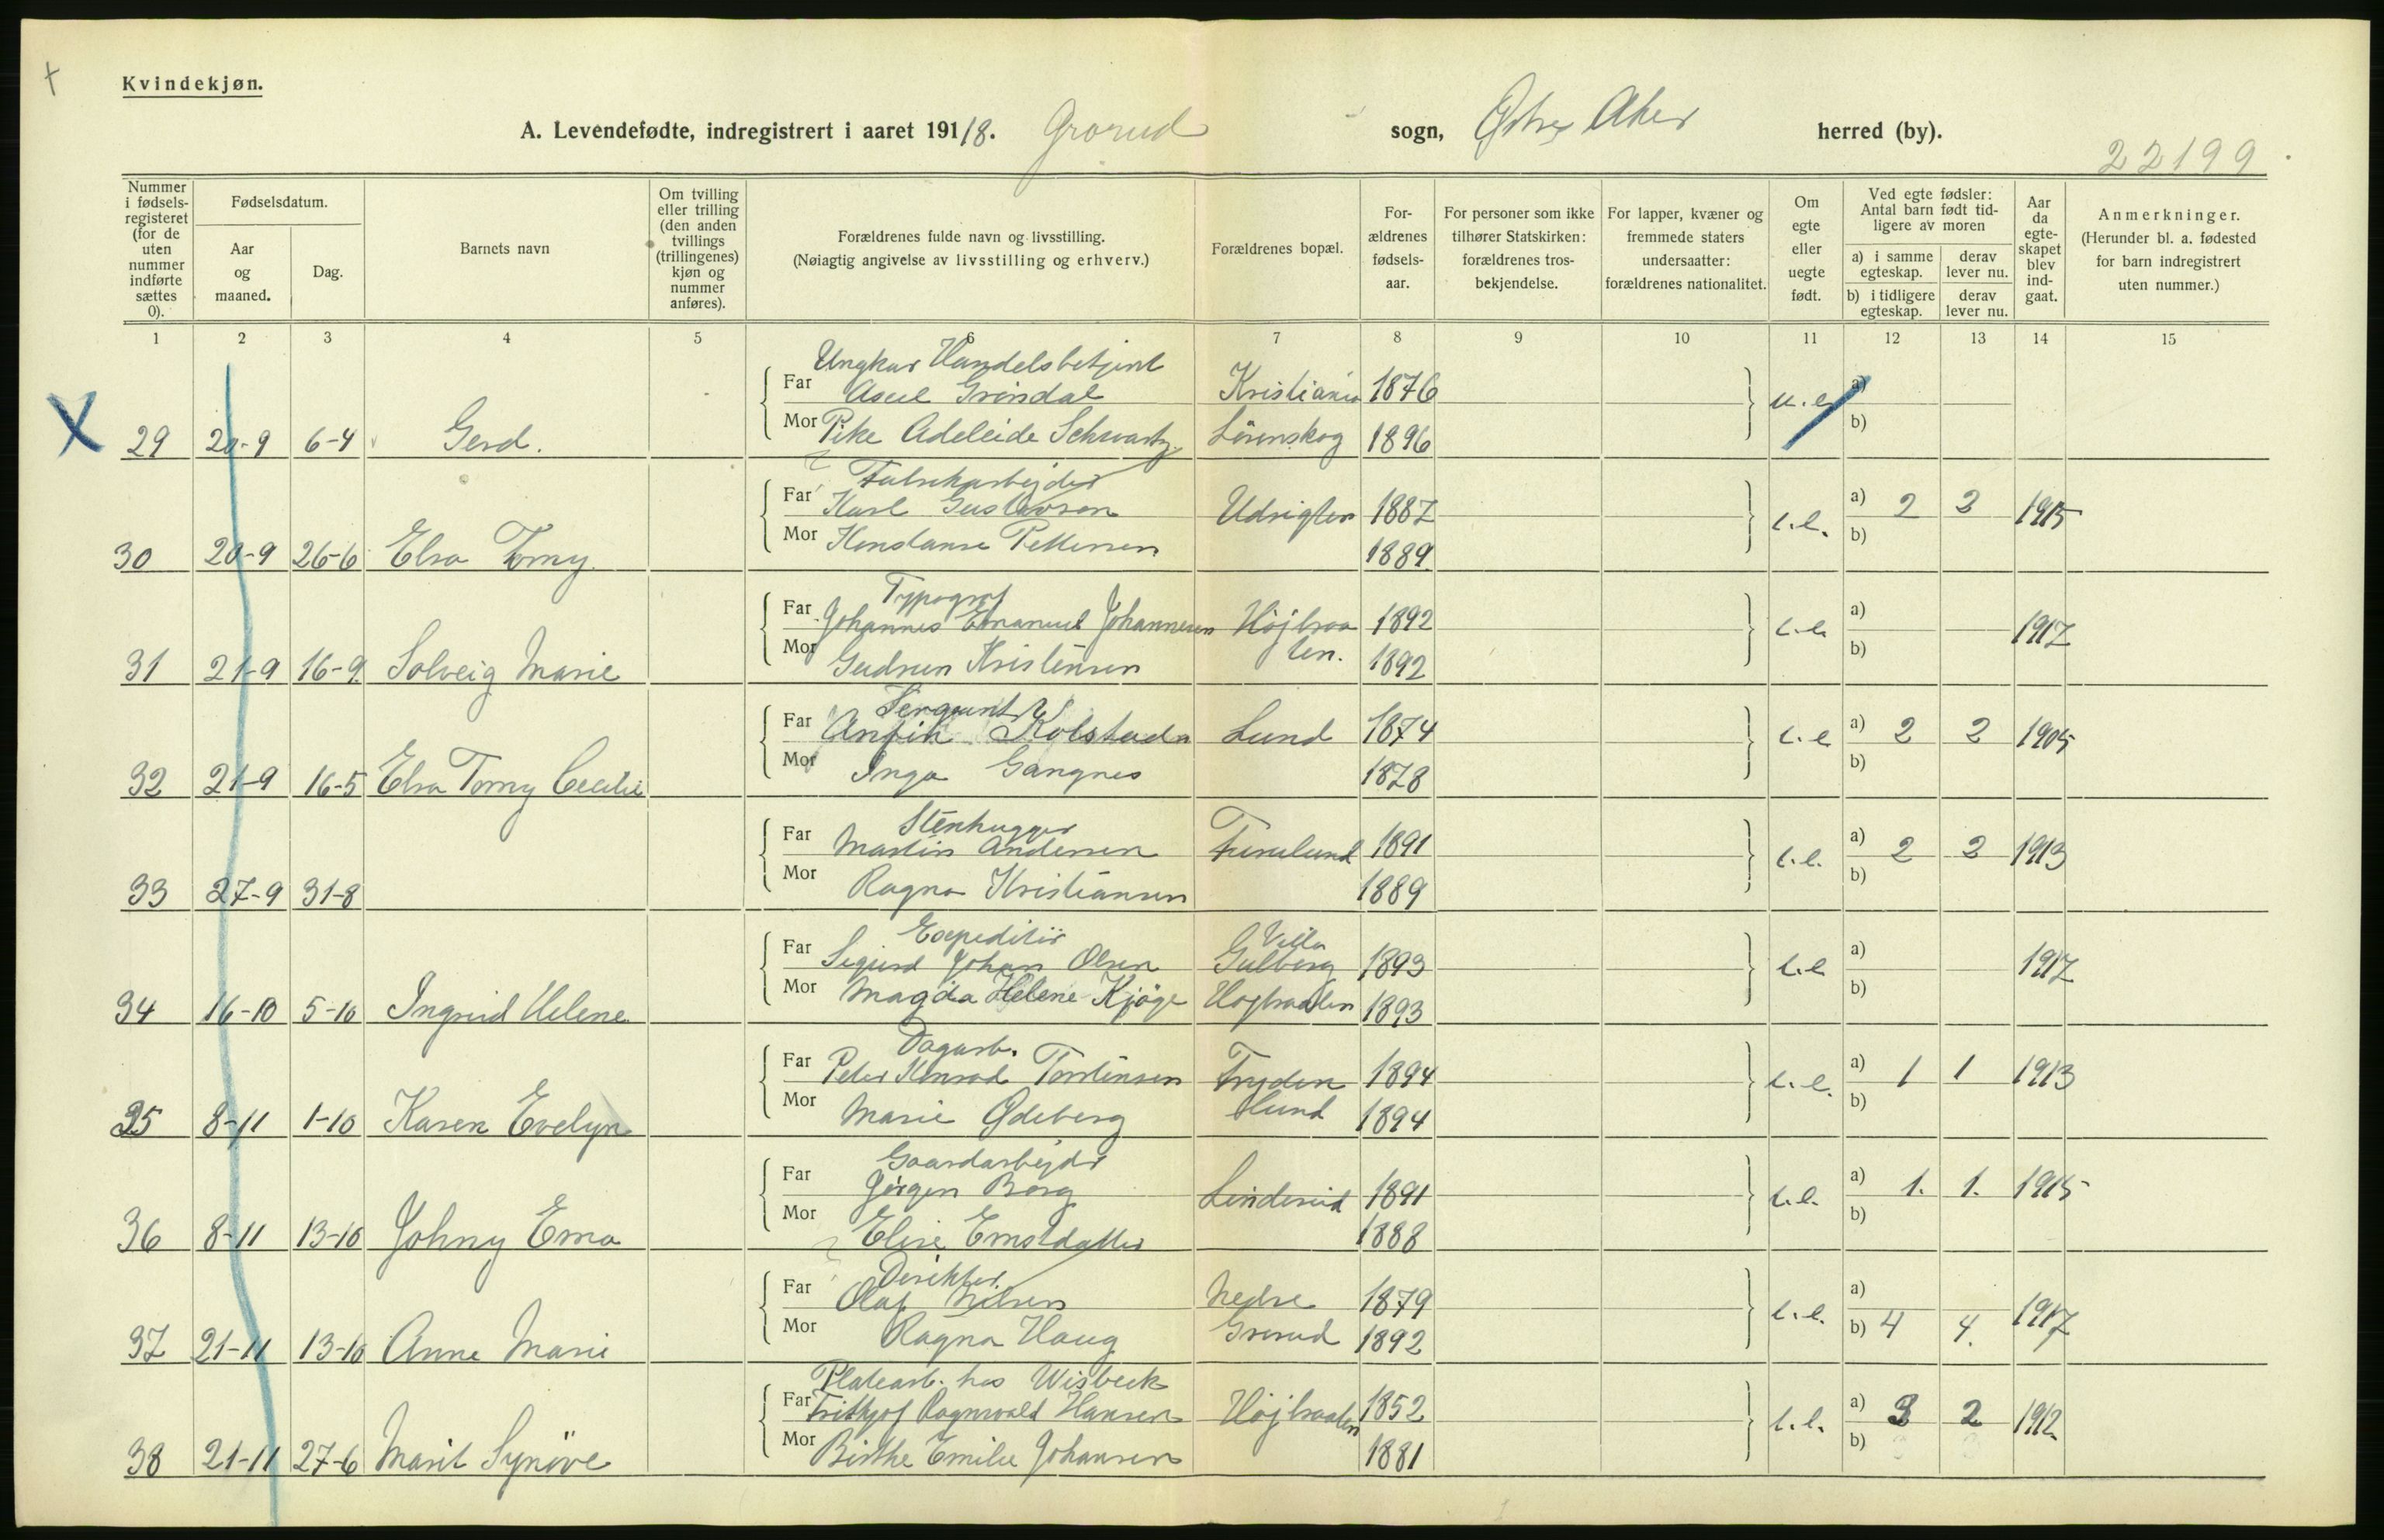 Kvindekjøn.
A. Levendefødte, indregistrert i aaret 19118. Grorud sogn, Østre Aker herred (by).
22199
Nummer i fødsels-registeret (for de uten nummer indførte sættes 0).
Fødselsdatum.
Aar og maaned.
Dag.
Barnets navn
Om tvilling eller trilling (den anden tvillings (trillingenes) kjøn og nummer anføres).
Forældrenes fulde navn og livsstilling.
(Nøiagtig angivelse av livsstilling og erhverv.)
Forældrenes bopæl.
For-ældrenes fødsels-aar.
For personer som ikke tilhører Statskirken: forældrenes tros-bekjendelse.
For lapper, kvæner og fremmede staters undersaatter: forældrenes nationalitet.
Om egte eller uegte født.
Ved egte fødsler: Antal barn født tid-ligere av moren
a) i samme egteskap.
derav lever nu.
b) i tidligere egteskap.
derav lever nu.
Aar da egte-skapet blev ind-gaat.
Anmerkninger.
(Herunder bl. a. fødested for barn indregistrert uten nummer.)
1 2 3 4 5 6 7 8 9 10 11 12 13 14 15
Ungkar Handelsbetjent
Far Grøndal Kristiania 1876 u.e. a)
Mor Pike Adeleide Schwartz Lørenskog 1896 b)
29 20-9 6-4 Gerd.
Fabrikarbejder
Far Karl Gustavson Udsigten 1887 e.e. a) 2 2 1915
Mor Konstanse Pettersen 1889 b)
30 20-9 26-6 Elsa Tomy
Typograf
Far Johannes Emanuel Johannesen Højbraa 1892 e.e. a) 1917
Mor Gudrun Kristensen ten. 1892 b)
31 21-9 16-9 Solveig Marie
Sergeant
Far Anfin Kolstada Lund 1874 e.e a) 2 2 1905
Mor Inga Gangnes 1878 b)
32 21-9 16-5 Elsa Tomy Cecilie
Stenhugger
Far Martin Andersen Furulund 1891 e.e. a) 2 2 1913
Mor Ragna Kristiansen 1889 b)
33 27-9 31-8
Expeditör Villa
Far Sigurd Johan Olsen Gulberg 1893 e.e a) 1917
Mor Magda Helene Kjöge Høybraaten 1893 b)
34 16-10 5-10 Ingrid Helene
Dagarb.
Far Peter Konrad Torstensen Fryden 1894 e.e. a) 1 1 1913
Mor Marie Ødeberg lund 1894 b)
35 8-11 1-10 Karen Evelyn
Gaardarbejder
Far Jörgen Borg Linderud 1891 e.e. a) 1. 1. 1915
Mor Elise Ernstdatter 1888 b)
36 8-11 13-10 Johny Erna
Direktør.
Far Olaf Nilsen Nedre 1879 e.e. a) 1917
Mor Ragna Haug Grorud 1892 b) 4 4.
37 21-11 13-10 Anne Marie
Platearb. hos Wisbeck
Far Frithjof Ragnvald Hansen Højbraaten 1852 e.e. a) 3 2 1912.
Mor Birthe Emilie Johansen 1881 b)
38 21-11 27-6 Marit Synöve